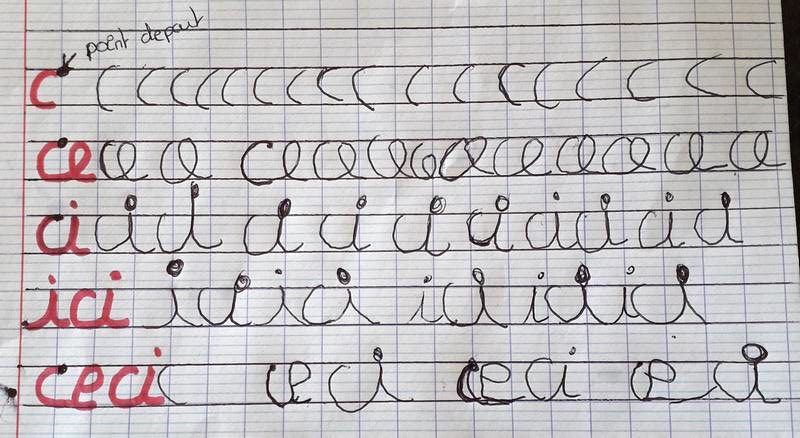 point depart
c c c c c c c c c c c c c c c c c c
ce ce ce ce ce ce ce ce ce ce ce ce ce
ci ci ci ci ci ci ci ci ci ci ci
ici ici ici ici ici ici
ceci c ceci ceci ceci